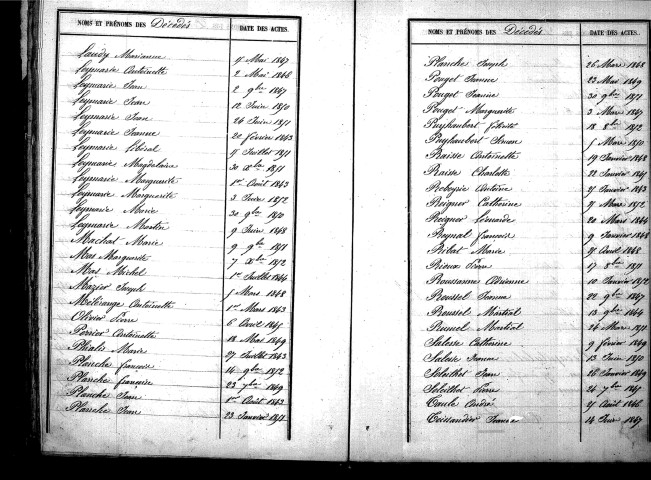 NOMS ET PRÉNOMS DES Décédés
DATE DES ACTES.
Laudy Marianne
Leymarie Antoinette 2 Mai 1846
Leymarie Jean 2 9bre 1847
Leymarie Jean 12 Juin 1850
Leymarie Jean 26 Juin 1851
Leymarie Jeanne 22 février 1843
Leymarie Libéral Juillet 1851
Leymarie Magdelaine 30 Xbre 1851
Leymarie Marguerite 1er Août 1843
Leymarie Marguerite 3 Juin 1852
Leymarie Marie 30 9bre 1850
Leymarie Martin 9 Juin 1848
Machat Marie 9 9bre 1851
Mas Marguerite 7 Xbre 1852
Mas Michel 1er Juillet 1844
Mazier Joseph Mars 1848
Mélirange Antoinette 1er Mars 1843
Olivier Pierre 6 Avril 1845
Perrier Antoinette 18 Mai 1849
Phialis Marie 27 Juillet 1843
Planche françois 14 9bre 1852
Planche françoise 23 7bre 1849
Planche Jean 1er Août 1843
Planche Jean 23 Janvier 1851
NOMS ET PRÉNOMS DES Décédés
DATE DES ACTES.
Planche Joseph 26 Mars 1848
Pouget Jeanne 22 Mai 1849
Pouget Jeanne 30 9bre 1851
Pouget Marguerite 3 Mai 1847
Puyhaubert félicité 18 8bre 1852
Puyhaubert Mars 1850
Raisse Antoinette 19 Janvier 1848
Raisse Charlotte 22 Janvier 1851
Reboyrie Antoine Janvier 1843
Reigner Catherine Mars 1852
Reigner Léonarde 20 Mars 1844
Reynal françois 9 Janvier 1848
Ribat Marie Avril 1848
Rioux Pierre 17 8bre 1851
Roussanne Adrienne 10 Janvier 1852
Roussel Jeanne 22 9bre 1847
Roussel Martial 13 9bre 1844
Martial 24 Mars 1851
Salesse Catherine 9 février 1849
Salesse Jeanne 13 Juin 1850
Soleilhet Jean 26 Janvier 1849
Soleilhet Pierre 24 7bre 1845
Taule André Août 1846
Teissandier Jeanne 14 Juin 1847